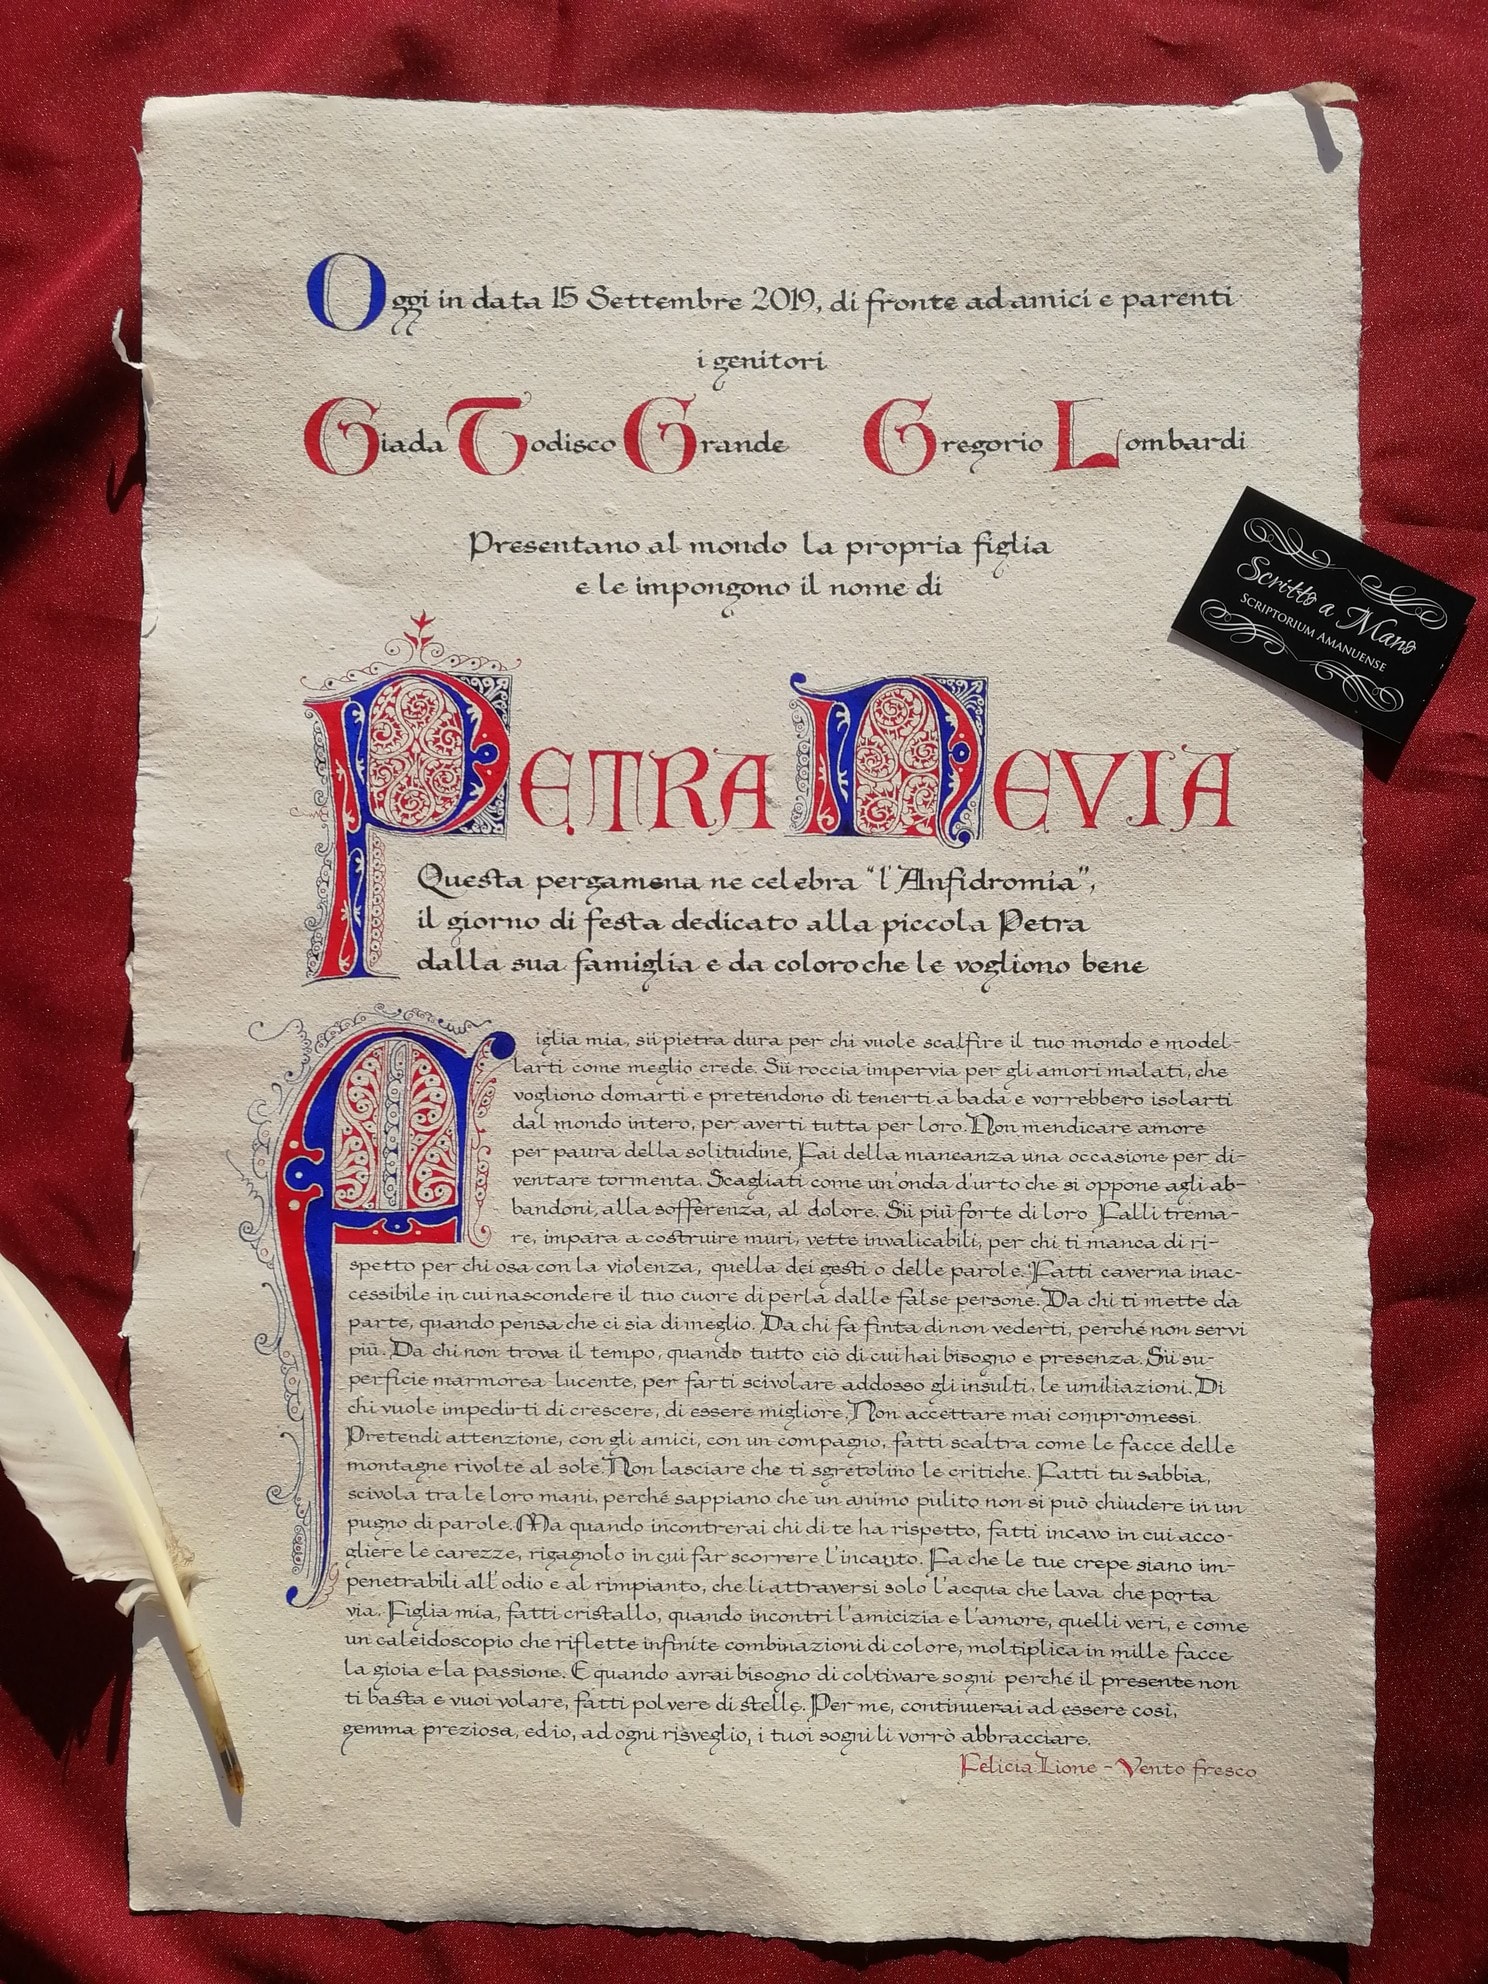 Oggi in data 15 Settembre 2019, di fronte ad amici e parenti
i genitori
Giada Todisco Grande Gregorio Lombardi
Presentano al mondo la propria figlia
e le impongono il nome di
PETRA NEVIA
Questa pergamena ne celebra "l'Anfidromia",
il giorno di festa dedicato alla piccola Petra
dalla sua famiglia e da coloro che le vogliono bene
Figlia mia, sii pietra dura per chi vuole scalfire il tuo mondo e model-
larti come meglio crede. Sii roccia impervia per gli amori malati, che
vogliono domarti e pretendono di tenerti a bada e vorrebbero isolarti
dal mondo intero, per averti tutta per loro. Non mendicare amore
per paura della solitudine, Fai della mancanza una occasione per di-
ventare tormenta. Scagliati come un'onda d'urto che si oppone agli ab-
bandoni, alla sofferenza, al dolore. Sii più forte di loro Falli trema-
re, impara a costruire muri, vette invalicabili, per chi ti manca di ri-
spetto per chi osa con la violenza, quella dei gesti o delle parole. Fatti caverna inac-
cessibile in cui nascondere il tuo cuore di perla dalle false persone. Da chi ti mette da
parte, quando pensa che ci sia di meglio. Da chi fa finta di non vederti, perché non servi
più. Da chi non trova il tempo, quando tutto ciò di cui hai bisogno e presenza. Sii su-
perficie marmorea lucente, per farti scivolare addosso gli insulti, le umiliazioni. Di
chi vuole impedirti di crescere, di essere migliore. Non accettare mai compromessi.
Pretendi attenzione, con gli amici, con un compagno, fatti scaltra come le facce delle
montagne rivolte al sole. Non lasciare che ti sgretolino le critiche. Fatti tu sabbia,
scivola tra le loro mani, perché sappiano che un animo pulito non si può chiudere in un
pugno di parole. Ma quando incontrerai chi di te ha rispetto, fatti incavo in cui acco-
gliere le carezze, rigagnolo in cui far scorrere l'incanto. Fa che le tue crepe siano im-
penetrabili all'odio e al rimpianto, che li attraversi solo l'acqua che lava che porta
via. Figlia mia, fatti cristallo, quando incontri l'amicizia e l'amore, quelli veri, e come
un caleidoscopio che riflette infinite combinazioni di colore, moltiplica in mille facce
la gioia e la passione. E quando avrai bisogno di coltivare sogni perché il presente non
ti basta e vuoi volare, fatti polvere di stelle. Per me, continuerai ad essere così,
gemma preziosa, ed io, ad ogni risveglio, i tuoi sogni li vorrò abbracciare.
Felicia Lione - Vento fresco
Scritto a Mano
SCRIPTORIUM AMANUENSE